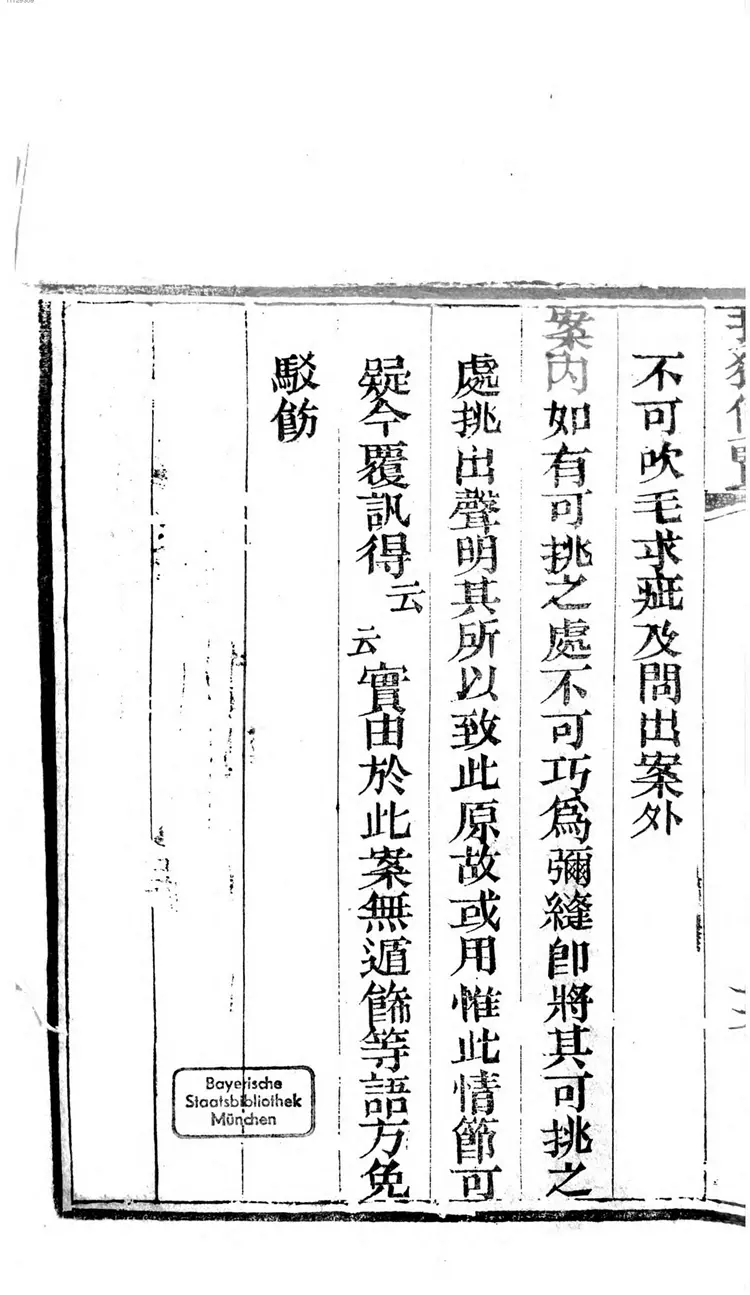 不可吹毛求疵及問出案外
案內如有可挑之處不可巧爲彌縫卽將其可挑之
處挑出聲明其所以致此原故或用惟此情節可
疑今覆訊得云云實由於此案無遁飾等語方免
駁飭
Bayerische
Staatsbibliothek
München